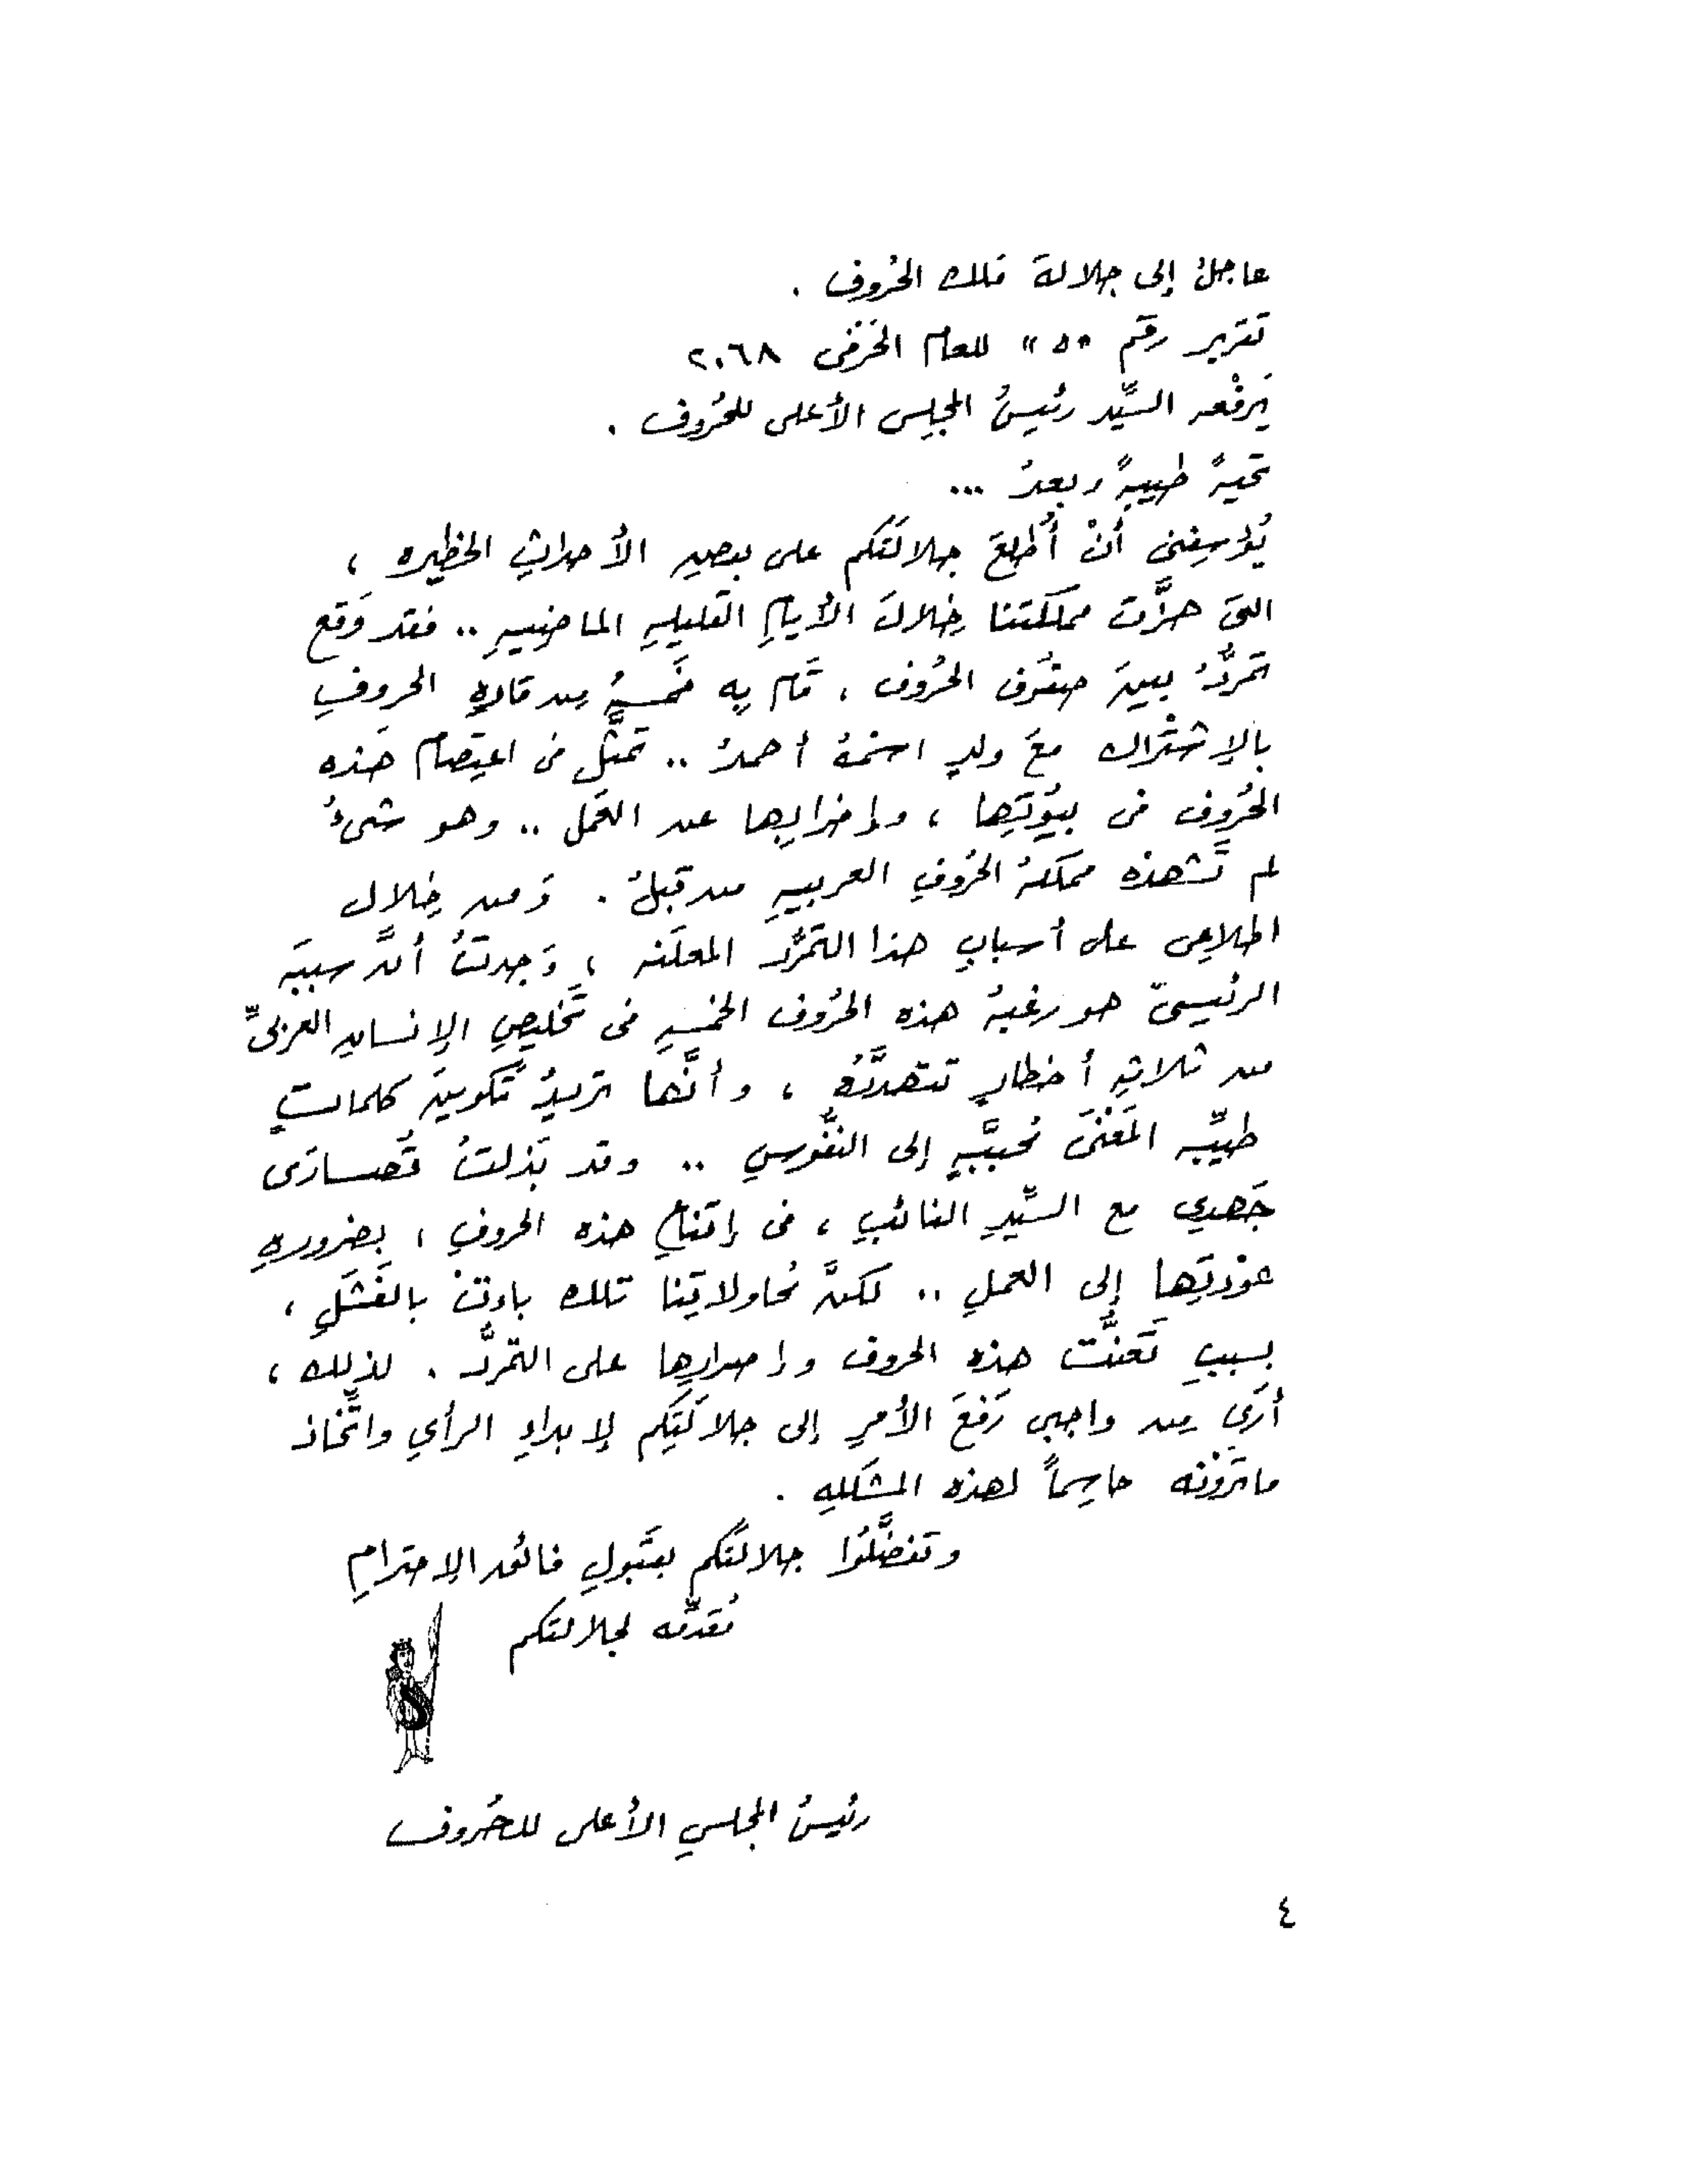 عاجلٌ إلى جلالة مَلك الحُروف .
تقرير رقم "٥٥" للعام الحَرفى ٢٠٦٨
يَرفْعه السيِّد رئيسُ المجلِس الأعلى للحُروف .
تحيةً طيبةً وبعدُ ...
يُؤسِفنى أنْ أُطلعَ جلالَتَكم على بعضِ الأحداثِ الخطيره ،
التى هزَّت مملكَتنا خِلالَ الأيامِ القليلهِ الماضِيهِ .. فقد وَقع
تمرُّدٌ بينَ صفُوف الحُروف ، قَام بِه خَمسهٌ مِن قادهِ الحروفِ
بالإشتْراك معَ ولدٍ اسْمهُ أحمدُ .. تمثَّل فى اعتِصام هَذه
الحُروِف فى بيُوتَهِا ، وإضرابِها عن العَمل .. وهو شىءٌ
لم تَشهدْه مملكهُ الحُروفِ العربيهِ من قبلُ . وَمن خِلال
اطلاعِى على أسبابِ هذا التمَرُّد المعلَنه ، وَجدتُ أنَّ سببَه
الرئيسىّ هو رغبهُ هذه الحُروف الخمسهِ فى تَخليصِ الإنسانِ العربىِّ
من ثلاثهِ أخطارٍ تتهدَّدُه ، وأنَّها تريدُ تَكوينَ كلماتٍ
طيِّبه المَعْنَى مُحببَّهٍ إلى النفُّوسِ .. وقد بَذلتُ قُصارَى
جَهدِى مع السيِّدِ النائبِ ، فى إقناعِ هذه الحروفِ ، بِضرورهِ
عوْدتَهِا إلى العملِ .. لكنَّ مُحاولاتِنا تلك باءتْ بالفَشَلِ ،
بسببِ تَعنُّت هذه الحروف وإصرارِها على التمرُّد . لذلِك ،
أرَى مِن واجبى رَفعَ الأمرِ إلى جلالَتِكم لإبداءِ الرأىِ واتِّخاذ
ماتَروْنه حاسِماً لهذه المشكلهِ .
وتفضَّلُوا جلالتَكم بقَبولِ فائق الإحترامِ
مُقدمِّه لجلالتكم
رئيسُ المجلسِ الأعلى للحُروف
٤